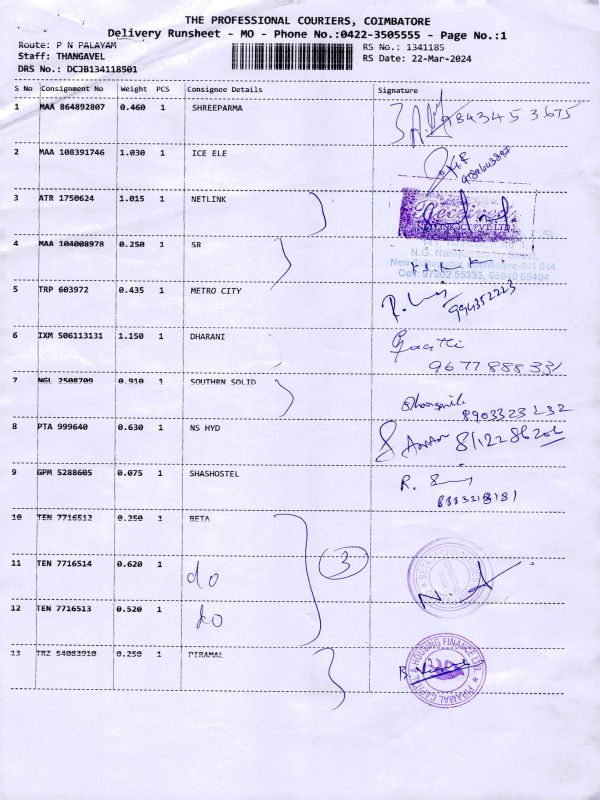 THE PROFESSIONAL COURIERS, COIMBATORE
Delivery Runsheet - MO - Phone No.:0422-3505555 - Page No.:1
Route: P N PALAYAM
Staff: THANGAVEL
DRS No.: DCJB134118501
RS No.: 1341185
RS Date: 22-Mar-2024
S No Consignment No Weight PCS Consignee Details Signature
1 MAA 864892807 0.460 1 SHREEPARMA
2 MAA 108391746 1.030 1 ICE ELE
3 ATR 1750624 1.015 1 NETLINK
Received
4 MAA 104008978 0.250 1 SR
Cell: 97902 55333, 98940 65404
5 TRP 603972 0.435 1 METRO CITY
994352223
6 IXM 506113131 1.150 1 DHARANI
9677888331
7 NGL 2508709 0.910 1 SOUTHRN SOLID
8903323232
8 PTA 999640 0.630 1 NS HYD
9 GPM 5288605 0.075 1 SHASHOSTEL
10 TEN 7716512 0.250 1 BETA
11 TEN 7716514 0.620 1 do 3
12 TEN 7716513 0.520 1 do
13 TRZ 54083910 0.250 1 PIRAMAL
PIRAMAL CAPITAL & HOUSING FINANCE LTD